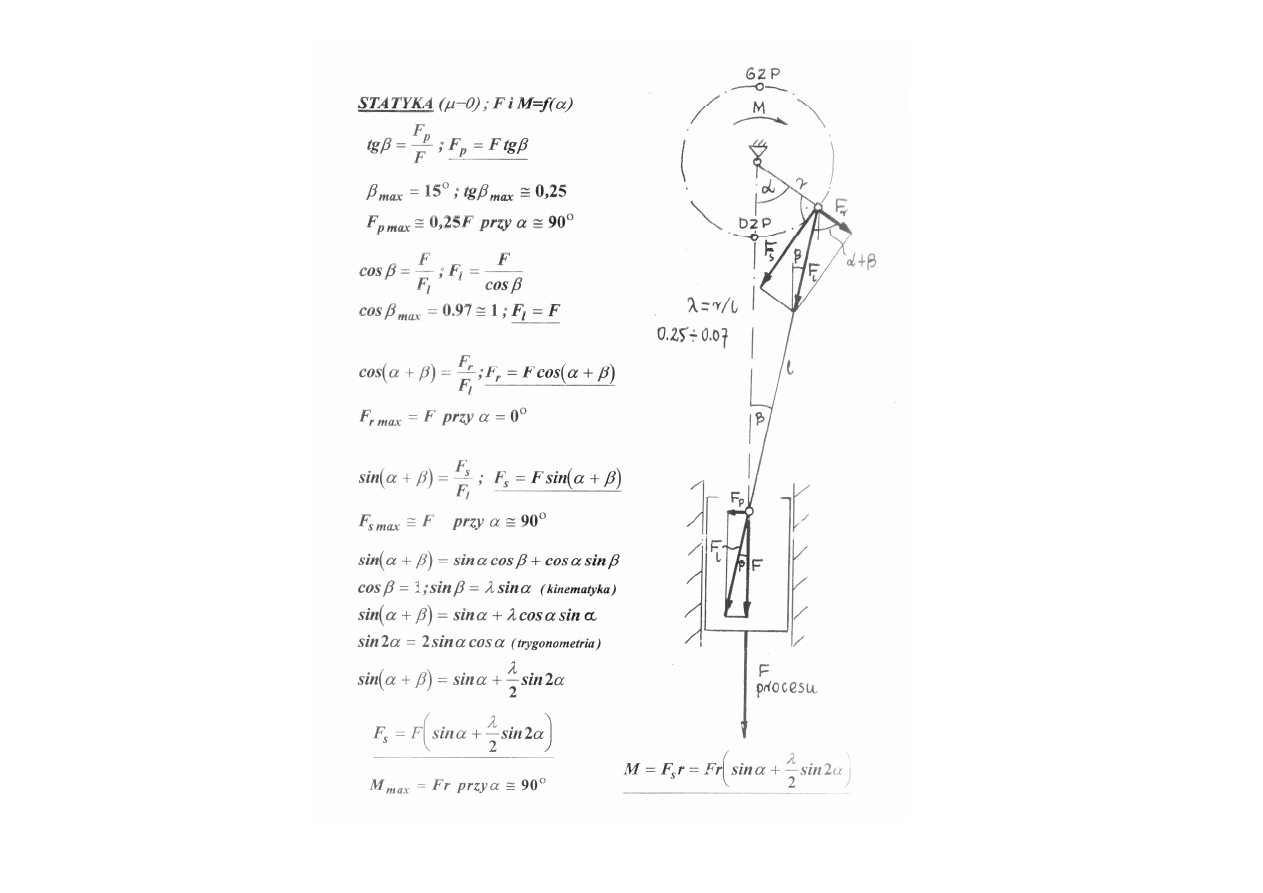 STATYKA (μ-0) ; F i M=f(α)
tgβ = F_p / F ; F_p = F tgβ
β_max = 15° ; tgβ_max ≅ 0,25
F_p max ≅ 0,25F przy α ≅ 90°
cos β = F / F_l ; F_l = F / cos β
cos β_max = 0.97 ≅ 1 ; F_l = F
cos(α + β) = F_r / F_l ; F_r = F cos(α + β)
F_r max = F przy α = 0°
sin(α + β) = F_s / F_l ; F_s = F sin(α + β)
F_s max ≅ F przy α ≅ 90°
sin(α + β) = sin α cos β + cos α sin β
cos β = 1 ; sin β = λ sin α (kinematyka)
sin(α + β) = sin α + λ cos α sin α
sin 2α = 2 sin α cos α (trygonometria)
sin(α + β) = sin α + λ/2 sin 2α
F_s = F(sin α + λ/2 sin 2α)
M_max = Fr przy α ≅ 90°
GZP
M
α
r
F_r
DZP
F_s
β
F_l
α+β
λ=r/l
0.25÷0.07
l
β
F_p
F_l
β
F
F
procesu
M = F_s r = Fr(sin α + λ/2 sin 2α)